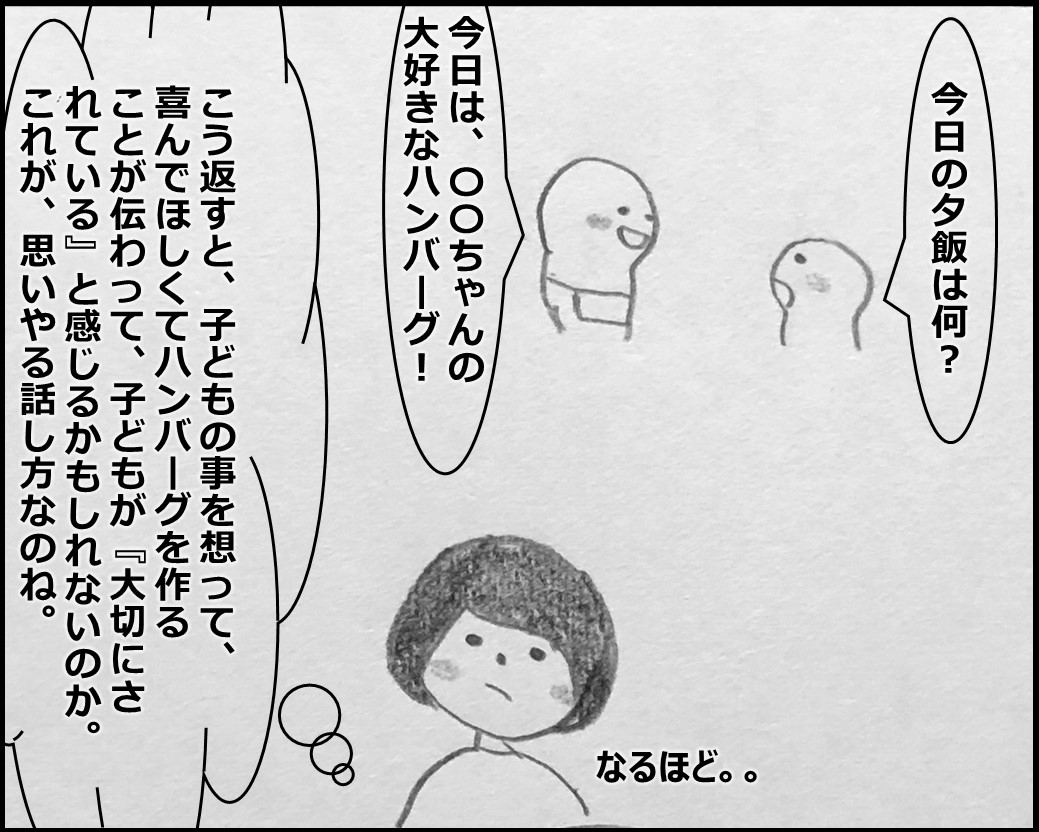 今日の夕飯は何?
今日は、〇〇ちゃんの
大好きなハンバーグ!
こう返すと、子どもの事を想って、
喜んでほしくてハンバーグを作る
ことが伝わって、子どもが『大切にさ
れている』と感じるかもしれないのか。
これが、思いやる話し方なのね。
なるほど。。